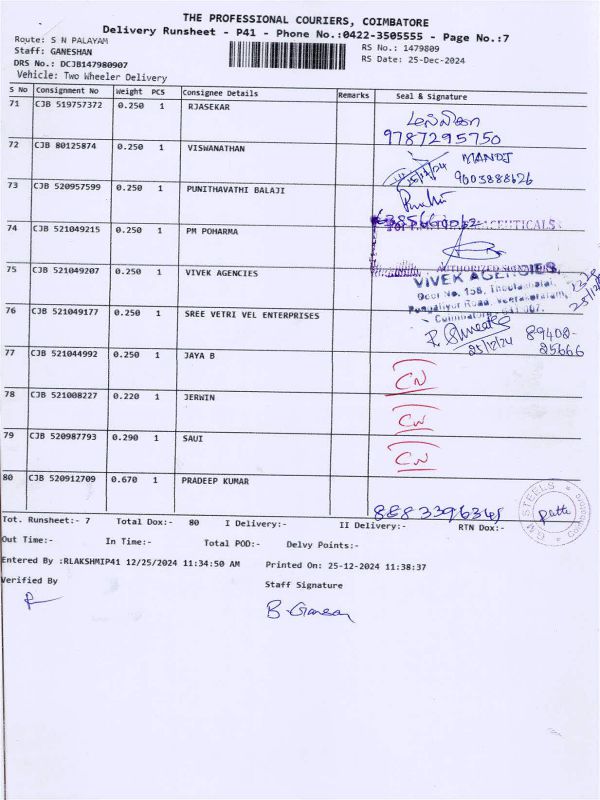 THE PROFESSIONAL COURIERS, COIMBATORE
Delivery Runsheet - P41 - Phone No.:0422-3505555 - Page No.:7
Route: S N PALAYAM
RS No.: 1479809
Staff: GANESHAN
RS Date: 25-Dec-2024
DRS No.: DCJB147980907
Vehicle: Two Wheeler Delivery
S No Consignment No Weight PCS Consignee Details Remarks Seal & Signature
71 CJB 519757372 0.250 1 RJASEKAR
9787295750
72 CJB 80125874 0.250 1 VISWANATHAN
MANOJ
9003888626
73 CJB 520957599 0.250 1 PUNITHAVATHI BALAJI
74 CJB 521049215 0.250 1 PM POHARMA
75 CJB 521049207 0.250 1 VIVEK AGENCIES
AUTHORIZED
VIVEK AGENCIES
Door No. 158,
Coimbatore
76 CJB 521049177 0.250 1 SREE VETRI VEL ENTERPRISES
25/12/24
89408-
25666
77 CJB 521044992 0.250 1 JAYA B
CN
78 CJB 521008227 0.220 1 JERWIN
CN
79 CJB 520987793 0.290 1 SAUI
CN
80 CJB 520912709 0.670 1 PRADEEP KUMAR
8883396345
G.M STEELS
Tot. Runsheet:- 7 Total Dox:- 80 I Delivery:- II Delivery:- RTN Dox:-
Out Time:- In Time:- Total POD:- Delvy Points:-
Entered By :RLAKSHMIP41 12/25/2024 11:34:50 AM Printed On: 25-12-2024 11:38:37
Verified By
Staff Signature
B. Ganesan